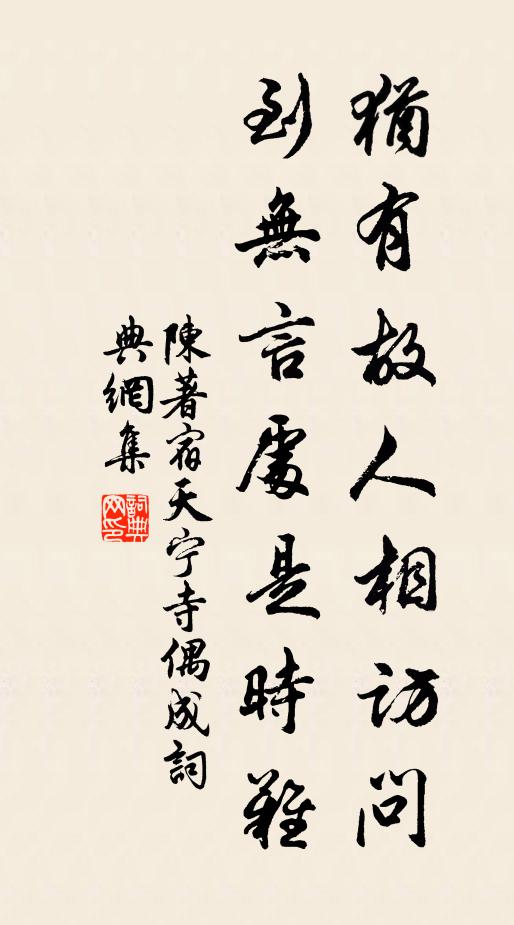 猶有故人相訪問
到無言處是時難
陳著宿天宁寺偶成詞
典網集
詞典網印